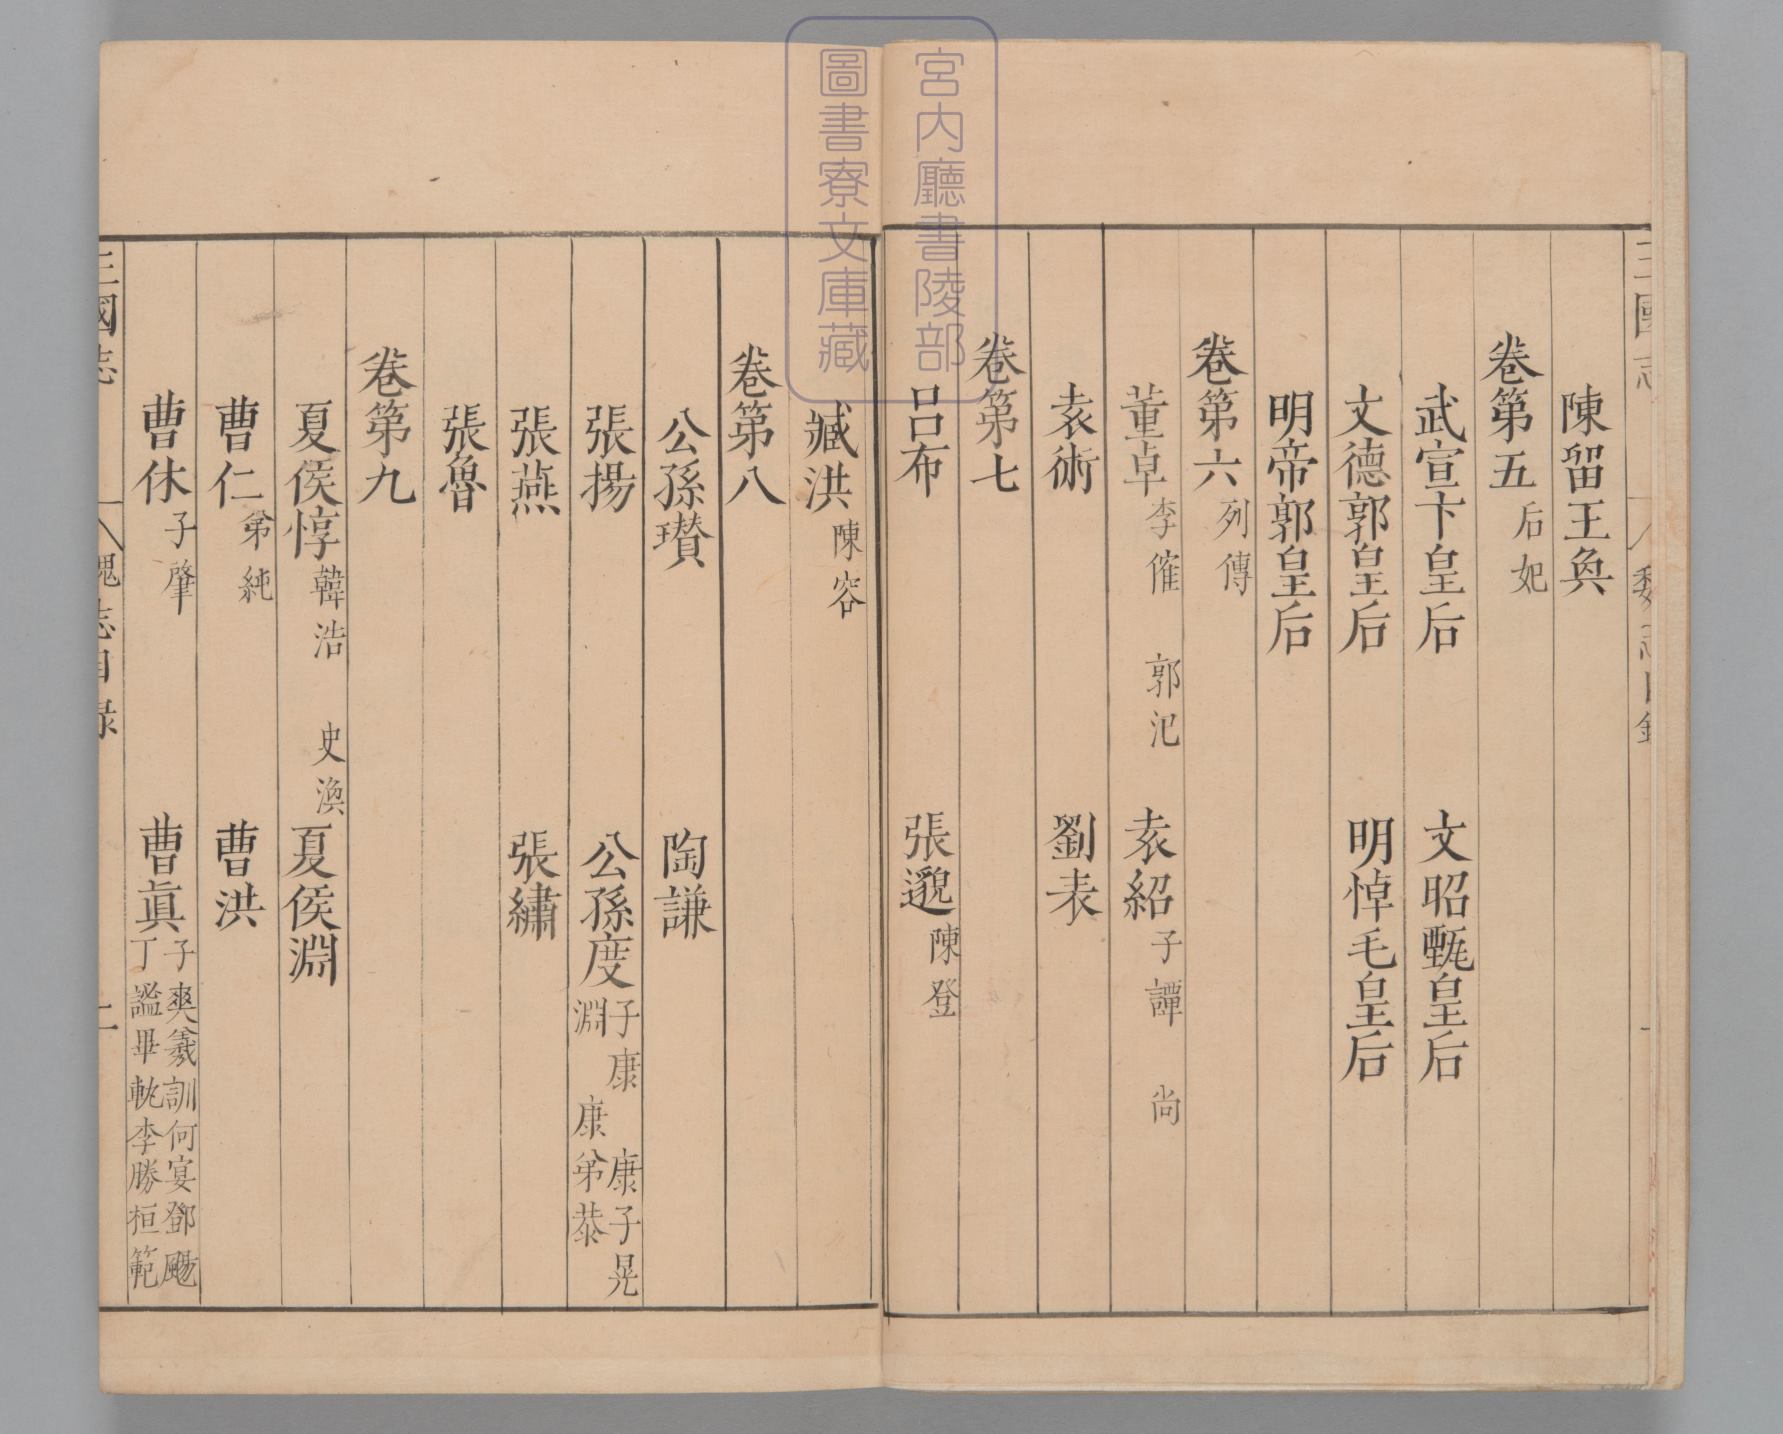 宮内廳書陵部
圖書寮文庫藏
陳留王奐
卷第五 后妃
武宣卞皇后 文昭甄皇后
文德郭皇后 明悼毛皇后
明帝郭皇后
卷第六 列傳
董卓 李傕 郭汜 袁紹 子譚 尚
袁術 劉表
卷第七
呂布 張邈 陳登
臧洪 陳容
卷第八
公孫瓚 陶謙
張揚 公孫度 子康 康子晃
淵 康弟恭
張燕 張繡
張魯
卷第九
夏侯惇 韓浩 史渙 夏侯淵
曹仁 弟純 曹洪
曹休 子肇 曹眞 子爽羲訓何宴鄧颺
丁謐畢軌李勝桓範
三國志 魏志目録 二